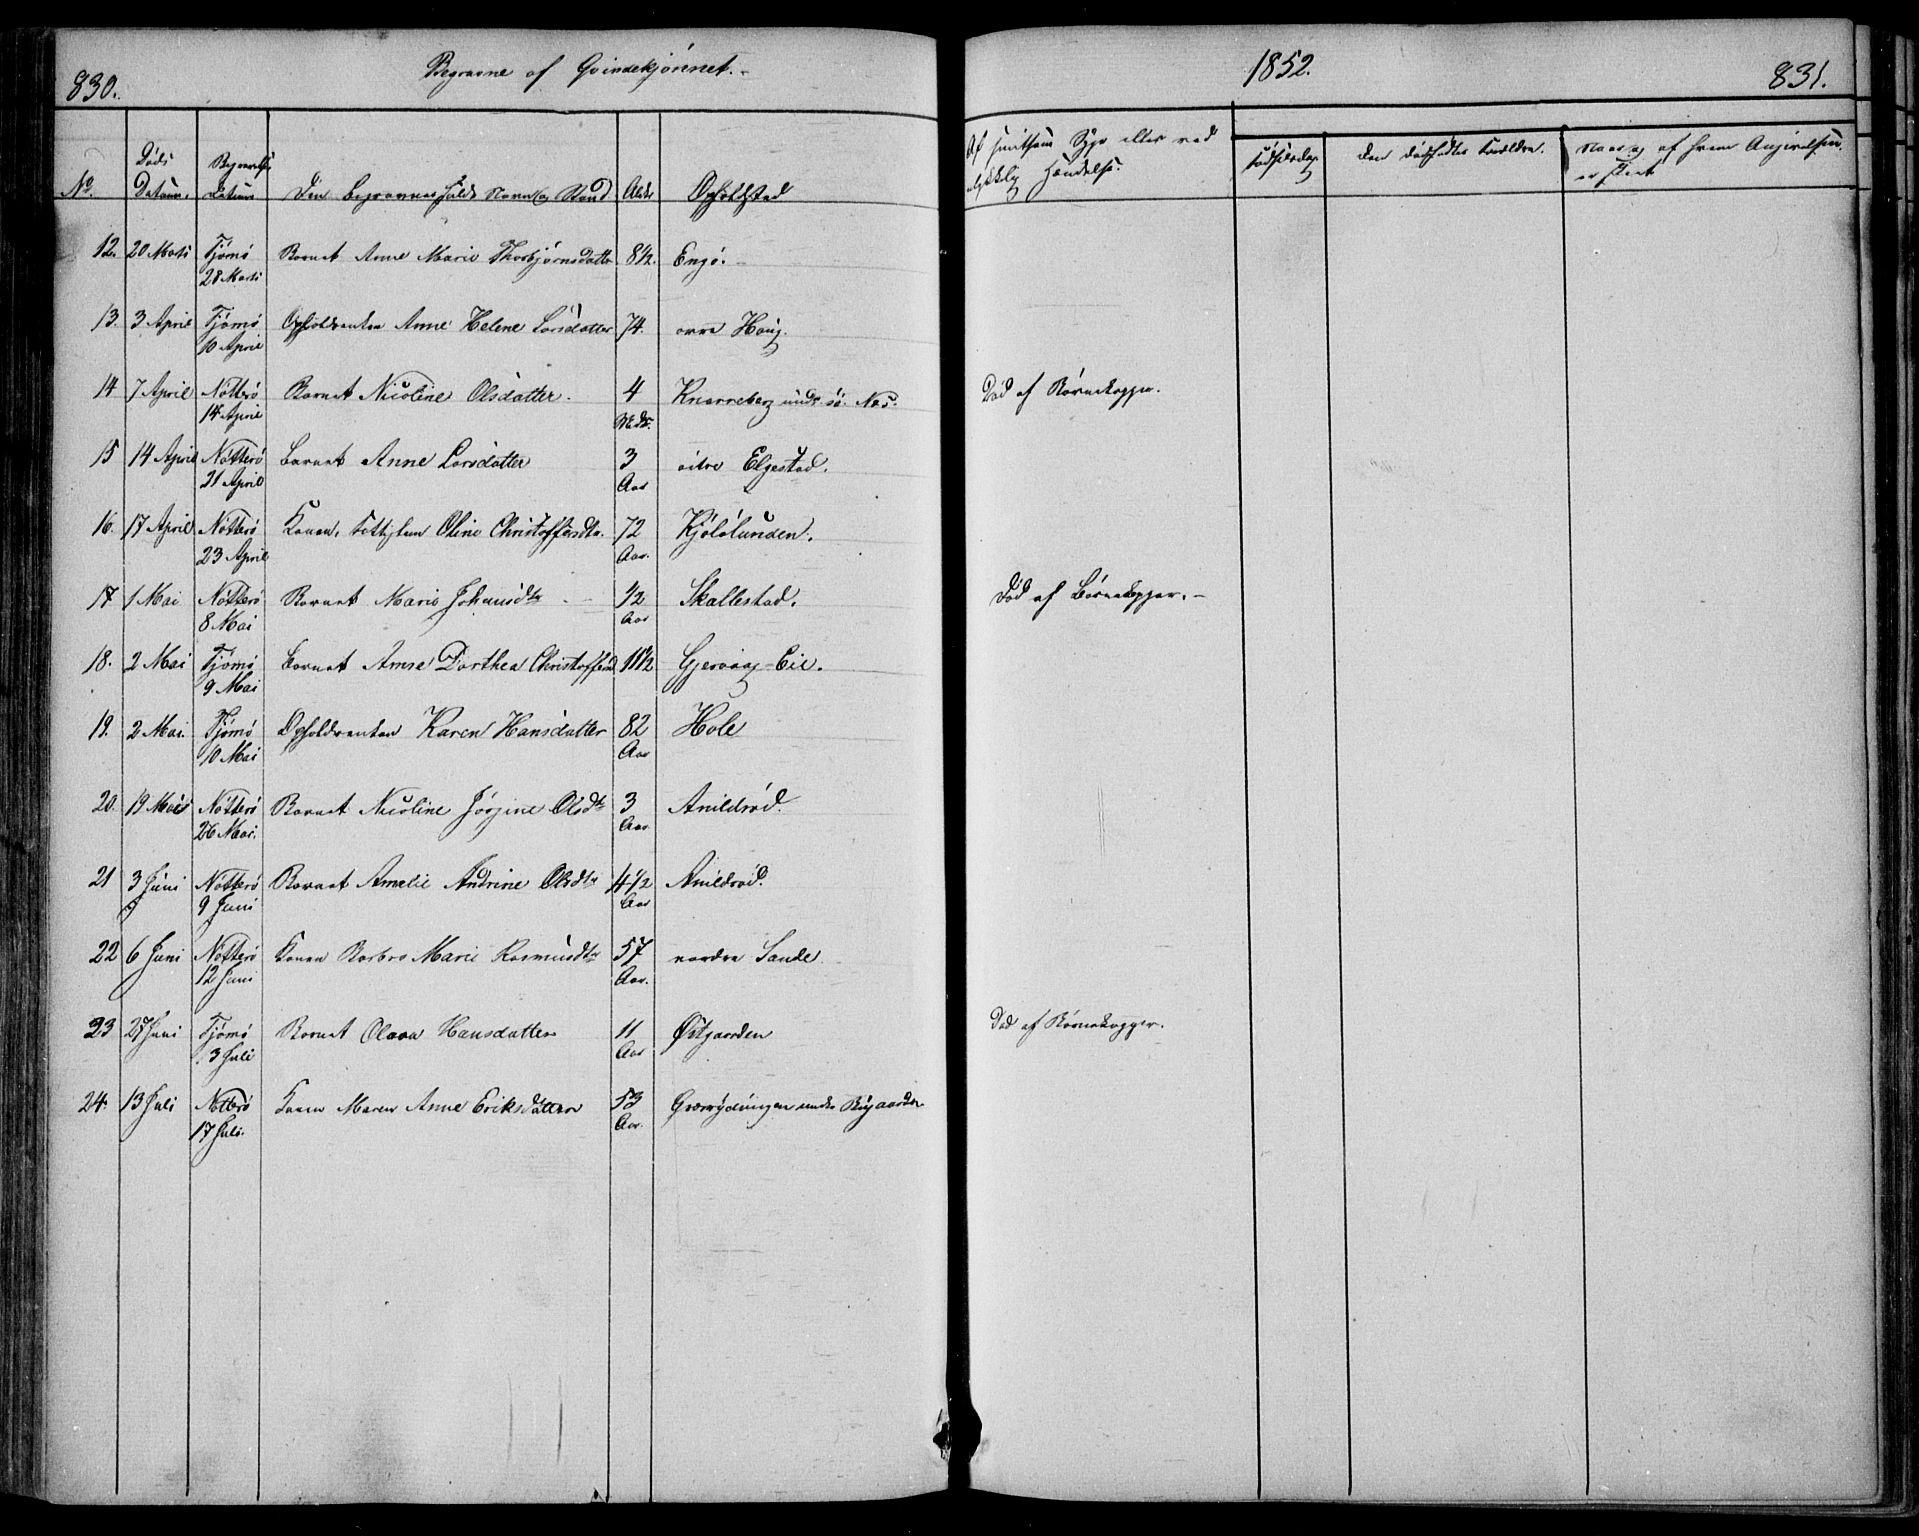 830.
Begravne af Qvindekjønnet.
1852.
831.
No.
Døds Datum.
Begravelses Datum
Den Begravnes fulde Navn og Stand
Alder
Opholdsted
Af smitsom Syge eller ved
ulykkelig Hændelse.
Fødselsdag
Den dødfødtes Forældre.
Naar og af hvem Angivelsen
er skeet
12. 20 Marts Tjømø Barnet Anne Marie Thorbjørnsdatter 8½. Engø.
28 Marts
13. 3 April Tjømø Opholdsenken Anne Helene Larsdatter 74. øvre Haug.
10 April
14 7 April Nøtterø Barnet Nicoline Olsdatter. 4 Knarreberg under sø. Næs. Død af Børnekopper.
14 April Mdr.
15 14 April Nøtterø Barnet Anne Larsdatter 3 øitre Elgestad.
21 April Aar
16. 17 April Nøtterø Konen, Oline Christoffersdtr. 72 Kjølølunden.
23 April Aar.
17 1 Mai Nøtterø Barnet Marie Johansdtr ½ Skallestad. Død af Børnekopper.
8 Mai Aar
18. 2 Mai Tjømø Barnet Anne Dorthea Christoffersd 11½ Gjervaag-Eie.
9 Mai
19. 2 Mai. Tjømø Opholdsenken Karen Hansdatter 82 Hole
10 Mai Aar
20. 19 Mai Nøtterø Barnet Nicoline Jørgine Olsdtr 3 Arildsrød.
26 Mai. Aar
21 3 Juni Nøtterø Barnet Amelie Andrine Olsdtr 4½ Arildsrød.
9 Juni Aar
22 6 Juni Nøtterø Konen Barbro Marie Rasmusdtr 57 nordre Sande
12 Juni Aar.
23 27 Juni Tjømø Barnet Olava Hansdatter 11 Østgaarden Død af Børnekopper.
3 Juli Aar
24. 13 Juli Nøtterø Konen Maren Anne Eriksdatter 53 under Bygaarden
17 Juli. Aar.